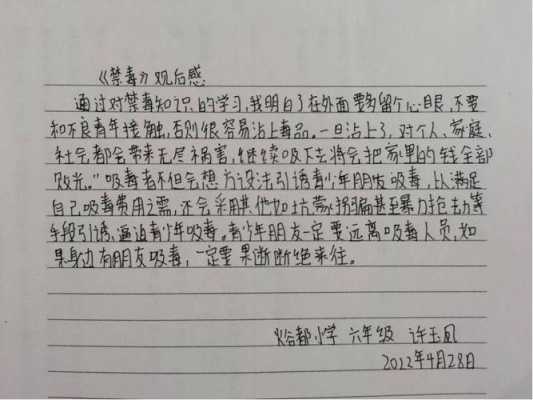 《禁毒》观后感
通过对禁毒知识的学习,我明白了在外面要多留个心眼,不要
和不良青年接触,否则很容易沾上毒品。一旦沾上了,对个人、家庭、
社会都会带来无尽祸害,继续吸下去将会把家里的钱全部
败光。”吸毒者不但会想方设法引诱青少年朋友吸毒,以满足
自己吸毒费用之需,还会采用其他如坑蒙拐骗甚至暴力抢劫等
手段引诱、逼迫青少年吸毒。青少年朋友一定要远离吸毒人员,如
果身边有朋友吸毒,一定要果断断绝来往。
都小学 六年级 许玉凤
2022年4月28日